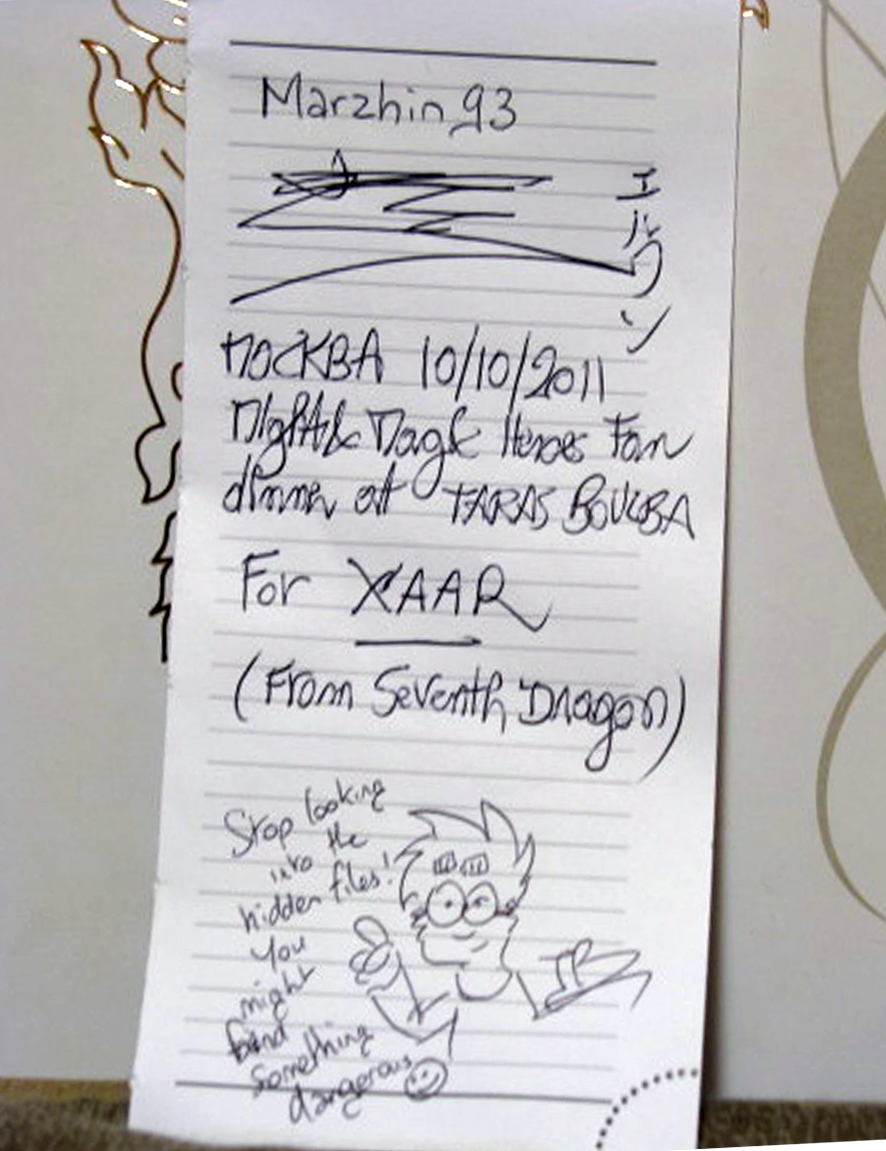 Marzhin93
エルワン
MOCKBA 10/10/2011
Might & Magic Heroes Fan
dinner at TARAS BOULBA
For XAAR
(From Seventh Dragon)
Stop looking
into the
hidden files!
You
might
find
something
dangerous